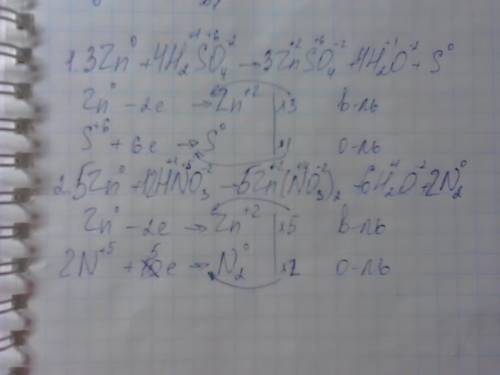 1. 3Zn⁰ + 4H₂⁺¹S⁺⁶O₄⁻² → 3Zn⁺²S⁺⁶O₄⁻² + 4H₂⁺¹O⁻² + S⁰
Zn⁰ - 2e → Zn⁺² | ×3 в-ль
S⁺⁶ + 6e → S⁰ | ×1 о-ль
2. 5Zn⁰ + 10H⁺¹N⁺⁵O₃⁻² → 5Zn⁺²(N⁺⁵O₃⁻²)₂ + 6H₂⁺¹O⁻² + 2N₂⁰
Zn⁰ - 2e → Zn⁺² | ×5 в-ль
2N⁺⁵ + 5e → N₂⁰ | ×2 о-ль